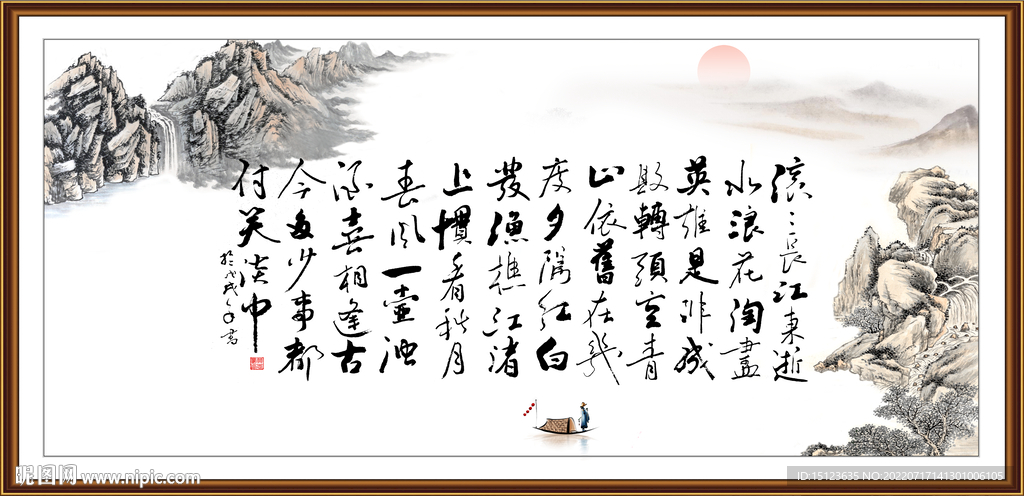 滚々長江東逝
水浪花淘盡
英雄是非成
敗轉頭空青
山依舊在幾
度夕陽紅白
發漁樵江渚
上慣看秋月
春风一壺濁
酒喜相逢古
今多少事都
付笑談中
於戊戌年書
昵图网 www.nipic.com
ID:15123635 NO:20220717141301006105